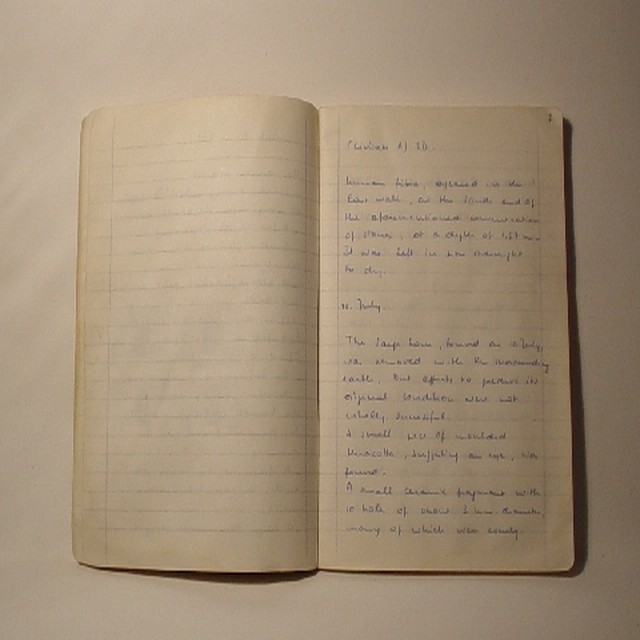 human tibia, exposed in the
East wall, at the South end of
the aforementioned concentration
of stones, at a depth of
It was left in situ overnight
to dry.
11. July.
The large bone, found on 10 July,
was removed with the surrounding
earth, but efforts to preserve its
original condition were not
wholly successful.
A small piece of moulded
terracotta, suggesting an eye, was
found.
A small ceramic fragment with
10 holes of about 2 mm. diameter,
many of which were